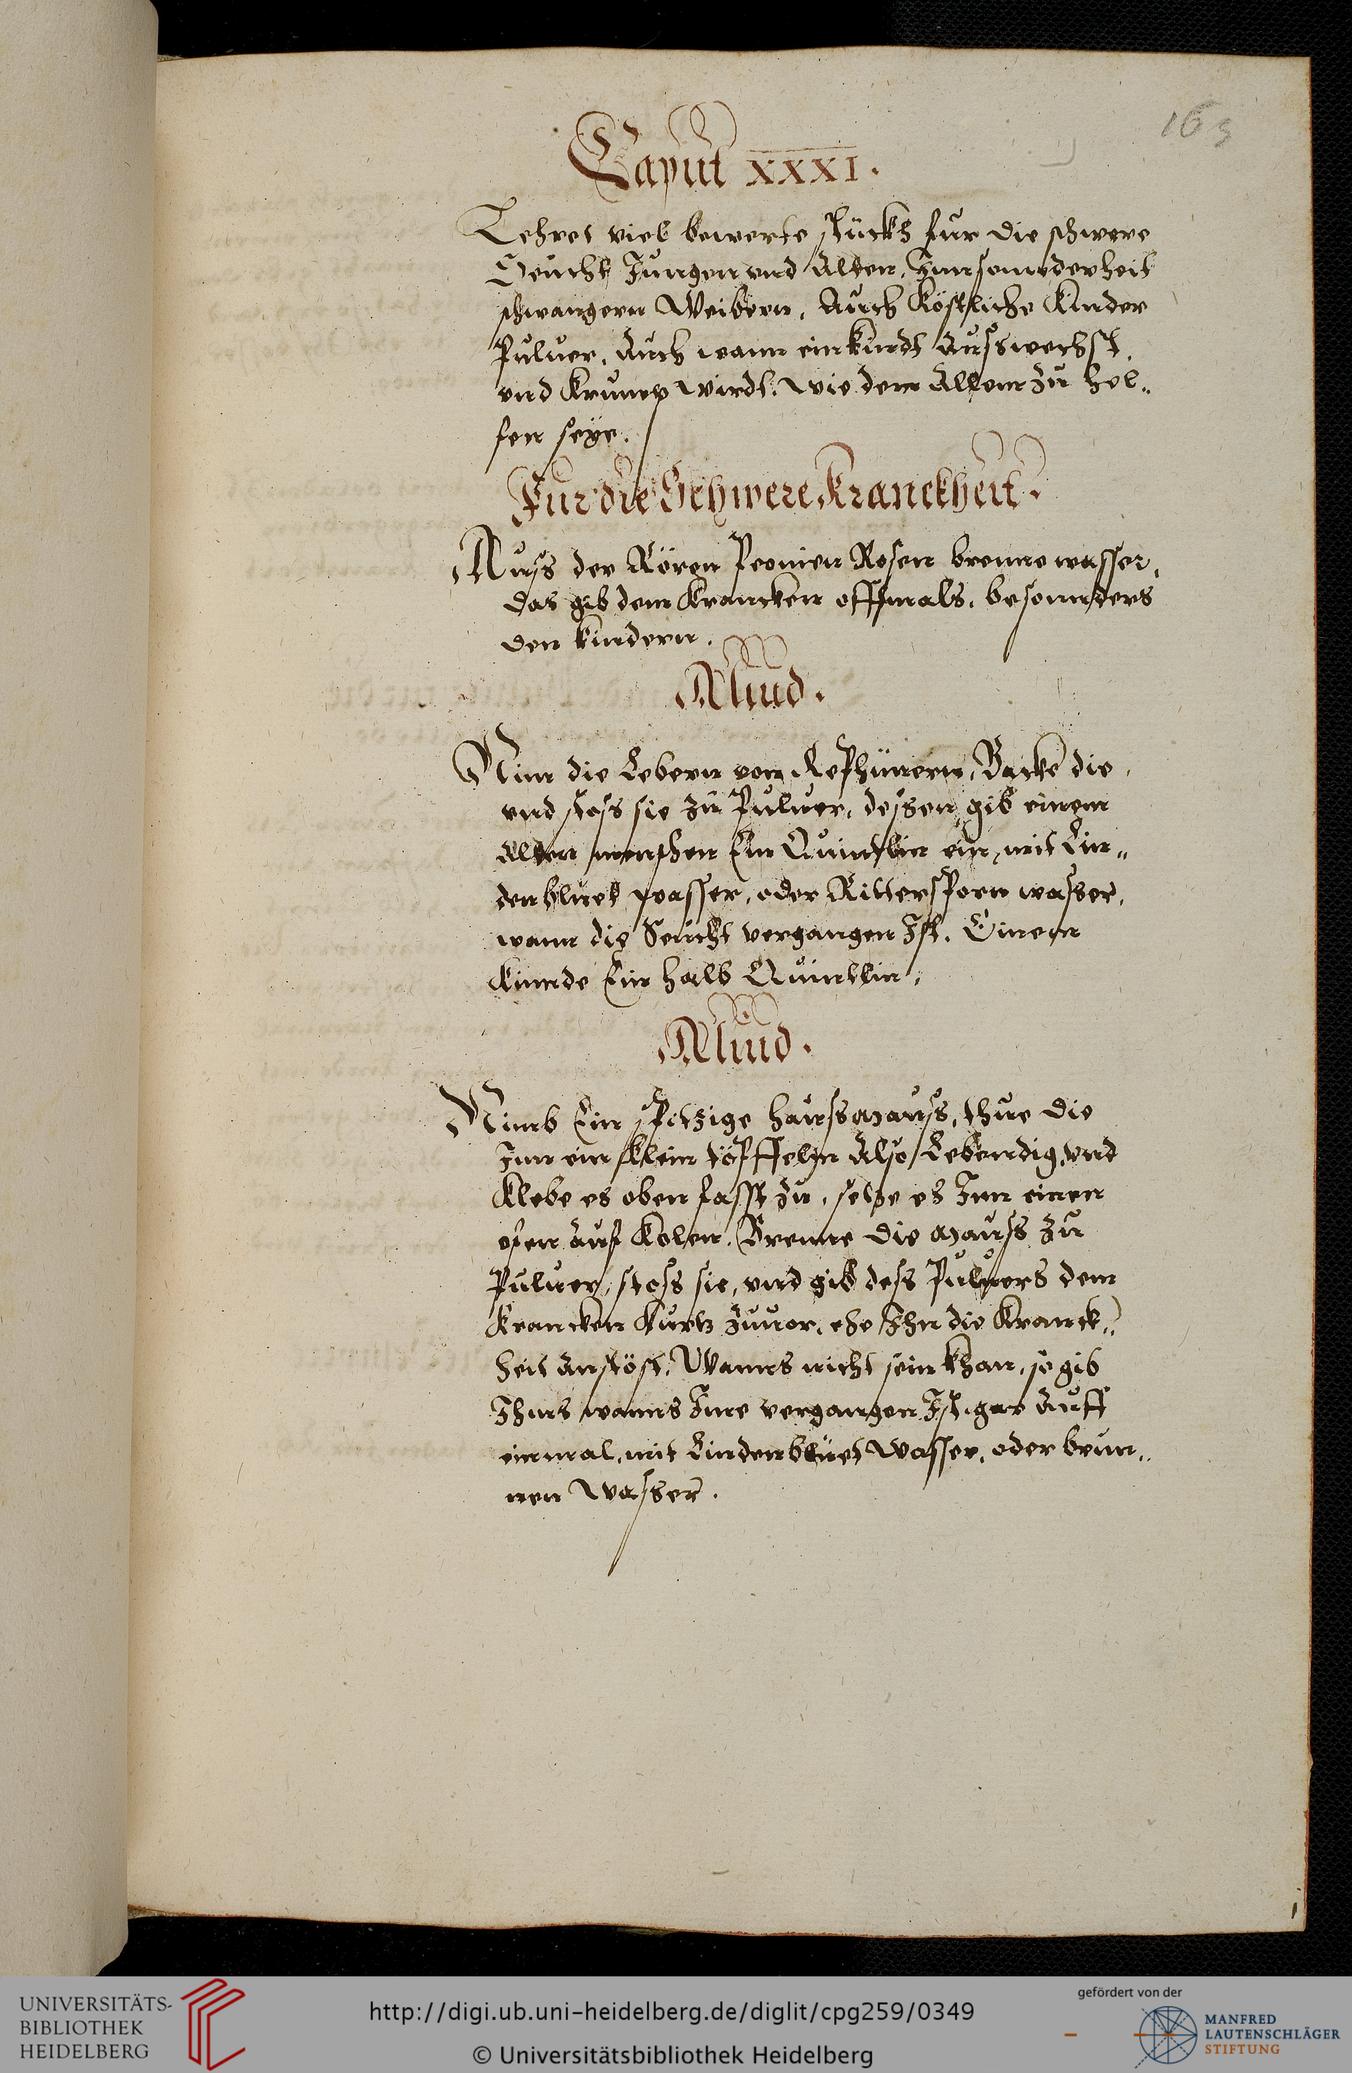 163
Caput XXXI.
Lehret viel bewerte stückh fur die schwere
Seücht Jungen vnd Alten, Innsonnderheit
schwangern Weibern, Auch Köstliche Kinder
Puluer, Auch wann ein kindt Ausswechst,
vnd Krump wirdt. wie dem Allem zu hel„
fen seye.
Fur die Schwere Kranckheit.
Auss der Rören Peonien Rosen brenne wasser,
das gib dem Krancken offtmals, besonnders
den kindern.
Aliud.
Nim die Lebern von Rephünern, Backe die,
vnd stoss sie zu Puluer, dessen gib einem
Alten menschen Ein Quintlin ein, mit Lin„
denbluet wasser, oder Rittersporn wasser,
wann die Seücht vergangen Ist. Einem
Kinnde Ein halb Quintlin,
Aliud.
Nimb Ein spitzige haussmauss, thue die
Inn ein klein töpffelin Also Lebendig, vnd
Klebe es oben fasst zu, setze es Inn einen
ofen auf Kolen. Brenne die mauss zu
Puluer, stoss sie, vnd gib dess Puluers dem
Krancken Kurtz zuuor, ehe Ihn die Kranck„
heit anstöst. Wanns nicht sein khan, so gib
Ihms wanns Ime vergangen Ist, gar Auff
einmal, mit Lindenblüet wasser, oder brun„
nen wasser.
UNIVERSITÄTS-
BIBLIOTHEK
HEIDELBERG
http://digi.ub.uni-heidelberg.de/diglit/cpg259/0349
© Universitätsbibliothek Heidelberg
gefördert von der
MANFRED
LAUTENSCHLÄGER
STIFTUNG